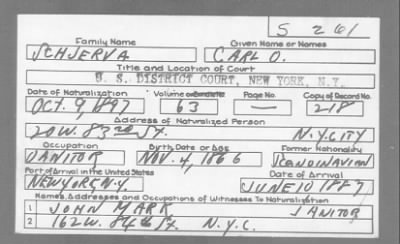 S 261
Family Name Given Name or Names
SCHJERVA CARL O.
Title and Location of Court
U. S. DISTRICT COURT, NEW YORK, N.Y.
Date of Naturalization Volume or Bundle No. Page No. Copy of Record No.
OCT. 9, 1897 63 — 218
Address of Naturalized Person
20 W. 83rd St. N.Y. CITY
Occupation Birth Date or Age Former Nationality
JANITOR NOV. 4, 1866 SCANDINAVIAN
Port of Arrival in the United States Date of Arrival
NEW YORK N.Y. JUNE 10 1887
Names, Addresses and Occupations of Witnesses To Naturalization
1 JOHN MARK JANITOR
2 162 W. 84th St. N.Y.C.